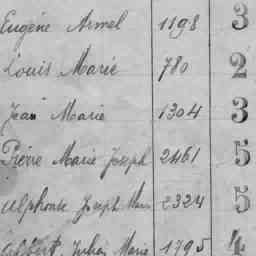 Eugène Armel 1198 3
Louis Marie 780 2
Jean Marie 1304 3
Pierre Marie Joseph 2461 5
Alphonse Joseph Marie 2324 5
Albert Julien Marie 1795 4